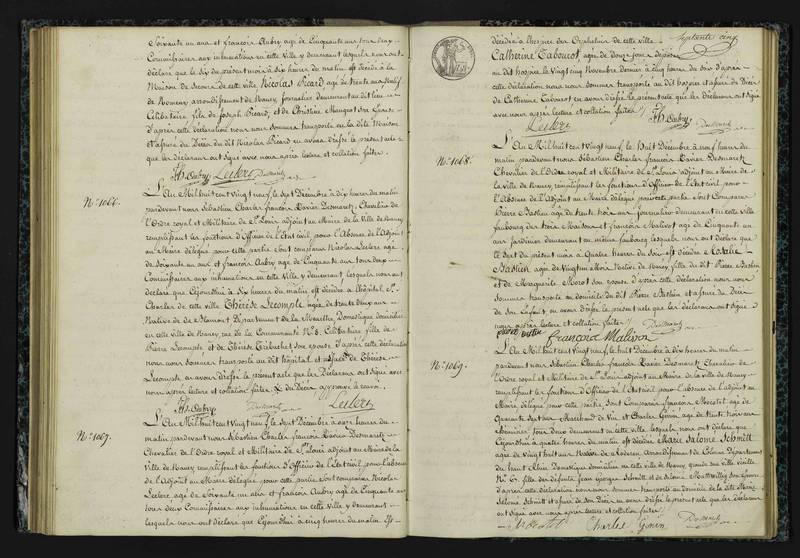 Soixante un ans et françois Aubry agé de Cinquante un tous deux
Commissaires aux inhumations en cette Ville y demeurant lesquels nous ont
déclaré que le dix du présent mois à six heures du matin est décédé à la
Maison de Secours de cette ville Nicolas Picard agé de trente ans Natif
de arrondissement de Nancy, journalier demeurant au dit lieu
Célibataire fils de Joseph Picard, et de Christine
d'après cette déclaration nous nous sommes transporté en la dite Maison
et assuré du Décès du dit Nicolas Picard en avons dressé le présent acte
que les déclarans ont signé avec nous après lecture et collation faites.
fs. Aubry Leclerc Desmaretz
N.° 1066.
L'An Mil huit cent Vingt neuf, le Sept Décembre à dix heures du matin
pardevant nous Sébastien Charles françois Xavier Desmaretz, Chevalier de
l'Ordre royal et Militaire de S.t Louis adjoint au Maire de la Ville de Nancy
remplissant les fonctions d'Officier de l'État civil, pour l'Absence de l'Adjoint
au Maire délégué pour cette partie Sont comparus Nicolas Leclerc agé
de Soixante un ans et françois Aubry agé de Cinquante un tous deux
Commissaires aux inhumations en cette Ville y demeurant lesquels nous ont
déclaré que Cejourdhui à Six heures du matin est décédée à l'hôpital S.t
Charles de cette ville Thérèse Lecomple agée de trente deux ans
Native de Département de la Moselle, Domestique domiciliée
en cette ville de Nancy rue de la Communauté N.° 8. Célibataire fille de
Pierre Lecomple et de Thérèse Trebuchet son épouse d'après cette déclaration
nous nous sommes transporté au dit hôpital et assuré de Thérèse
Lecomple en avons dressé le présent acte que les Déclarans ont signé avec
nous après lecture et collation faites, du Décès approuvé le renvoi.
fs. Aubry Desmaretz Leclerc
N.° 1067.
L'An Mil huit cent Vingt neuf, le Sept Décembre à onze heures du
matin pardevant nous Sébastien Charles françois Xavier Desmaretz
Chevalier de l'Ordre royal et Militaire de S.t Louis adjoint au Maire de la
Ville de Nancy remplissant les fonctions d'Officier de l'État civil pour l'absence
de l'Adjoint au Maire délégué pour cette partie Sont comparus Nicolas
Leclerc, agé de Soixante un ans et françois Aubry agé de Cinquante un
tous deux Commissaires aux inhumations en cette Ville y demeurant
lesquels nous ont déclaré que Cejourdhui à Cinq heures du matin est
Septante cinq
décédée à l'hospice des Orphelins de cette ville
Catherine Tabourot, agée de Douze jours déposée
au dit hospice le Vingt cinq Novembre dernier à Cinq heures du soir d'après
cette déclaration nous nous sommes transporté au dit hospice et assuré du Décès
de Catherine Tabourot en avons dressé le présent acte que les Déclarans ont signé
avec nous après lecture et collation faites.
Leclerc fs. Aubry Desmaretz
N.° 1068.
L'An Mil huit cent Vingt neuf, le Huit Décembre à neuf heures du
matin pardevant nous Sébastien Charles françois Xavier Desmaretz
Chevalier de l'Ordre royal et Militaire de S.t Louis adjoint au Maire de
la ville de Nancy, remplissant les fonctions d'Officier de l'État civil pour
l'Absence de l'Adjoint au Maire délégué pour cette partie Sont Comparus
Pierre Bastien agé de trente trois ans journalier demeurant en cette ville
faubourg des trois Maisons et françois Malivot agé de Cinquante un
ans jardinier demeurant en même faubourg lesquels nous ont déclaré que
le Sept du présent mois à Quatre heures du soir est décédée Rosalie
Bastien agée de Vingt un Mois Native de Nancy fille du dit Pierre Bastien
et de Marguerite Morot son épouse d'après cette déclaration nous nous
sommes transporté au domicile du dit Pierre Bastien et assuré du Décès
de son Enfant, en avons dressé le présent acte que les déclarans ont signé
avec nous après lecture et collation faites. Desmaretz
françois Malivot
N.° 1069.
L'An Mil huit cent Vingt neuf, le huit Décembre à dix heures du matin
pardevant nous Sébastien Charles françois Xavier Desmaretz Chevalier de
l'Ordre royal et Militaire de S.t Louis adjoint au Maire de la ville de Nancy
remplissant les fonctions d'Officier de l'État civil pour l'absence de l'adjoint au
Maire délégué pour cette partie, Sont Comparus françois agé de
Quarante Sept ans Marchand de Vin et Charles agé de trente trois ans
tous deux demeurant en cette ville, lesquels nous ont déclaré que
Cejourdhui à quatre heures du matin est décédée Marie Salomé Schmitt
agée de Vingt huit ans Native de arrondissement de Colmar Département
du haut Rhin Domestique domiciliée en cette ville de Nancy, grande rue ville vieille
N.° 6. fille des défunts Jean Georges Schmitt et de Salomé son épouse
d'après cette déclaration nous nous sommes transporté au domicile de la dite Marie
Salomé Schmitt et assuré de son Décès en avons dressé le présent acte que les déclarans
ont signé avec nous après lecture et collation faites.
Charles Desmaretz